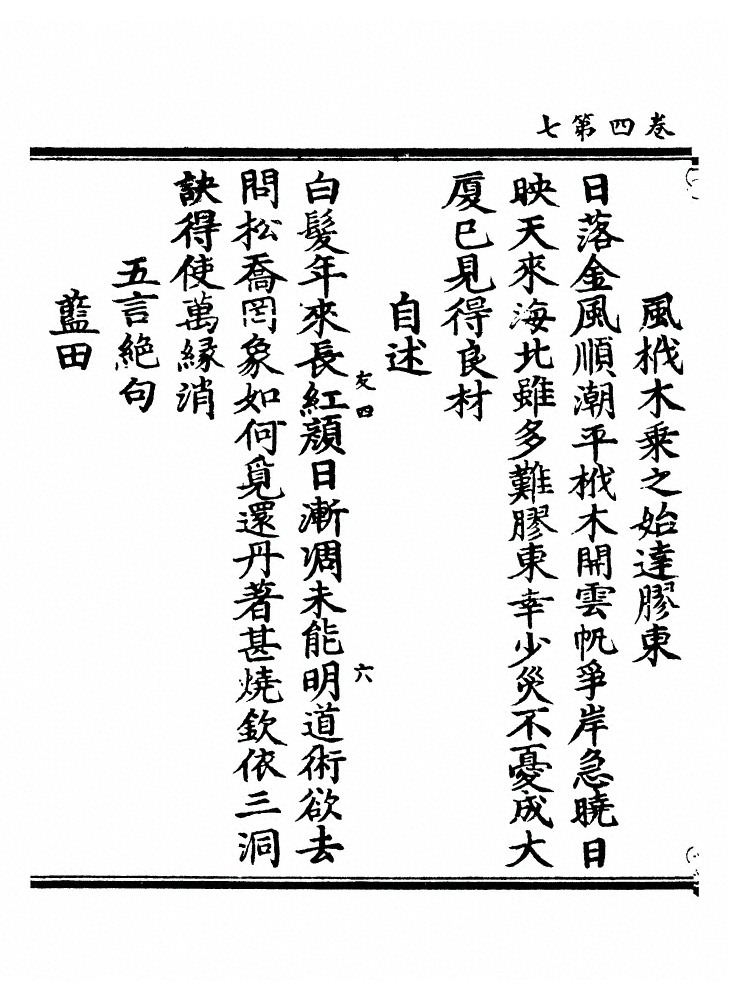 七第四卷
風栰木乗之始達膠東
日落金風順潮平栰木開雲帆爭岸急曉日
映天來海北雖多難膠東幸少災不憂成大
厦已見得良材
自述
白髮年來長紅顔日漸凋未能明道術欲去
友四
六
問松喬罔象如何覓還丹著甚燒欽依三洞
訣得使萬緣消
五言絶句
藍田